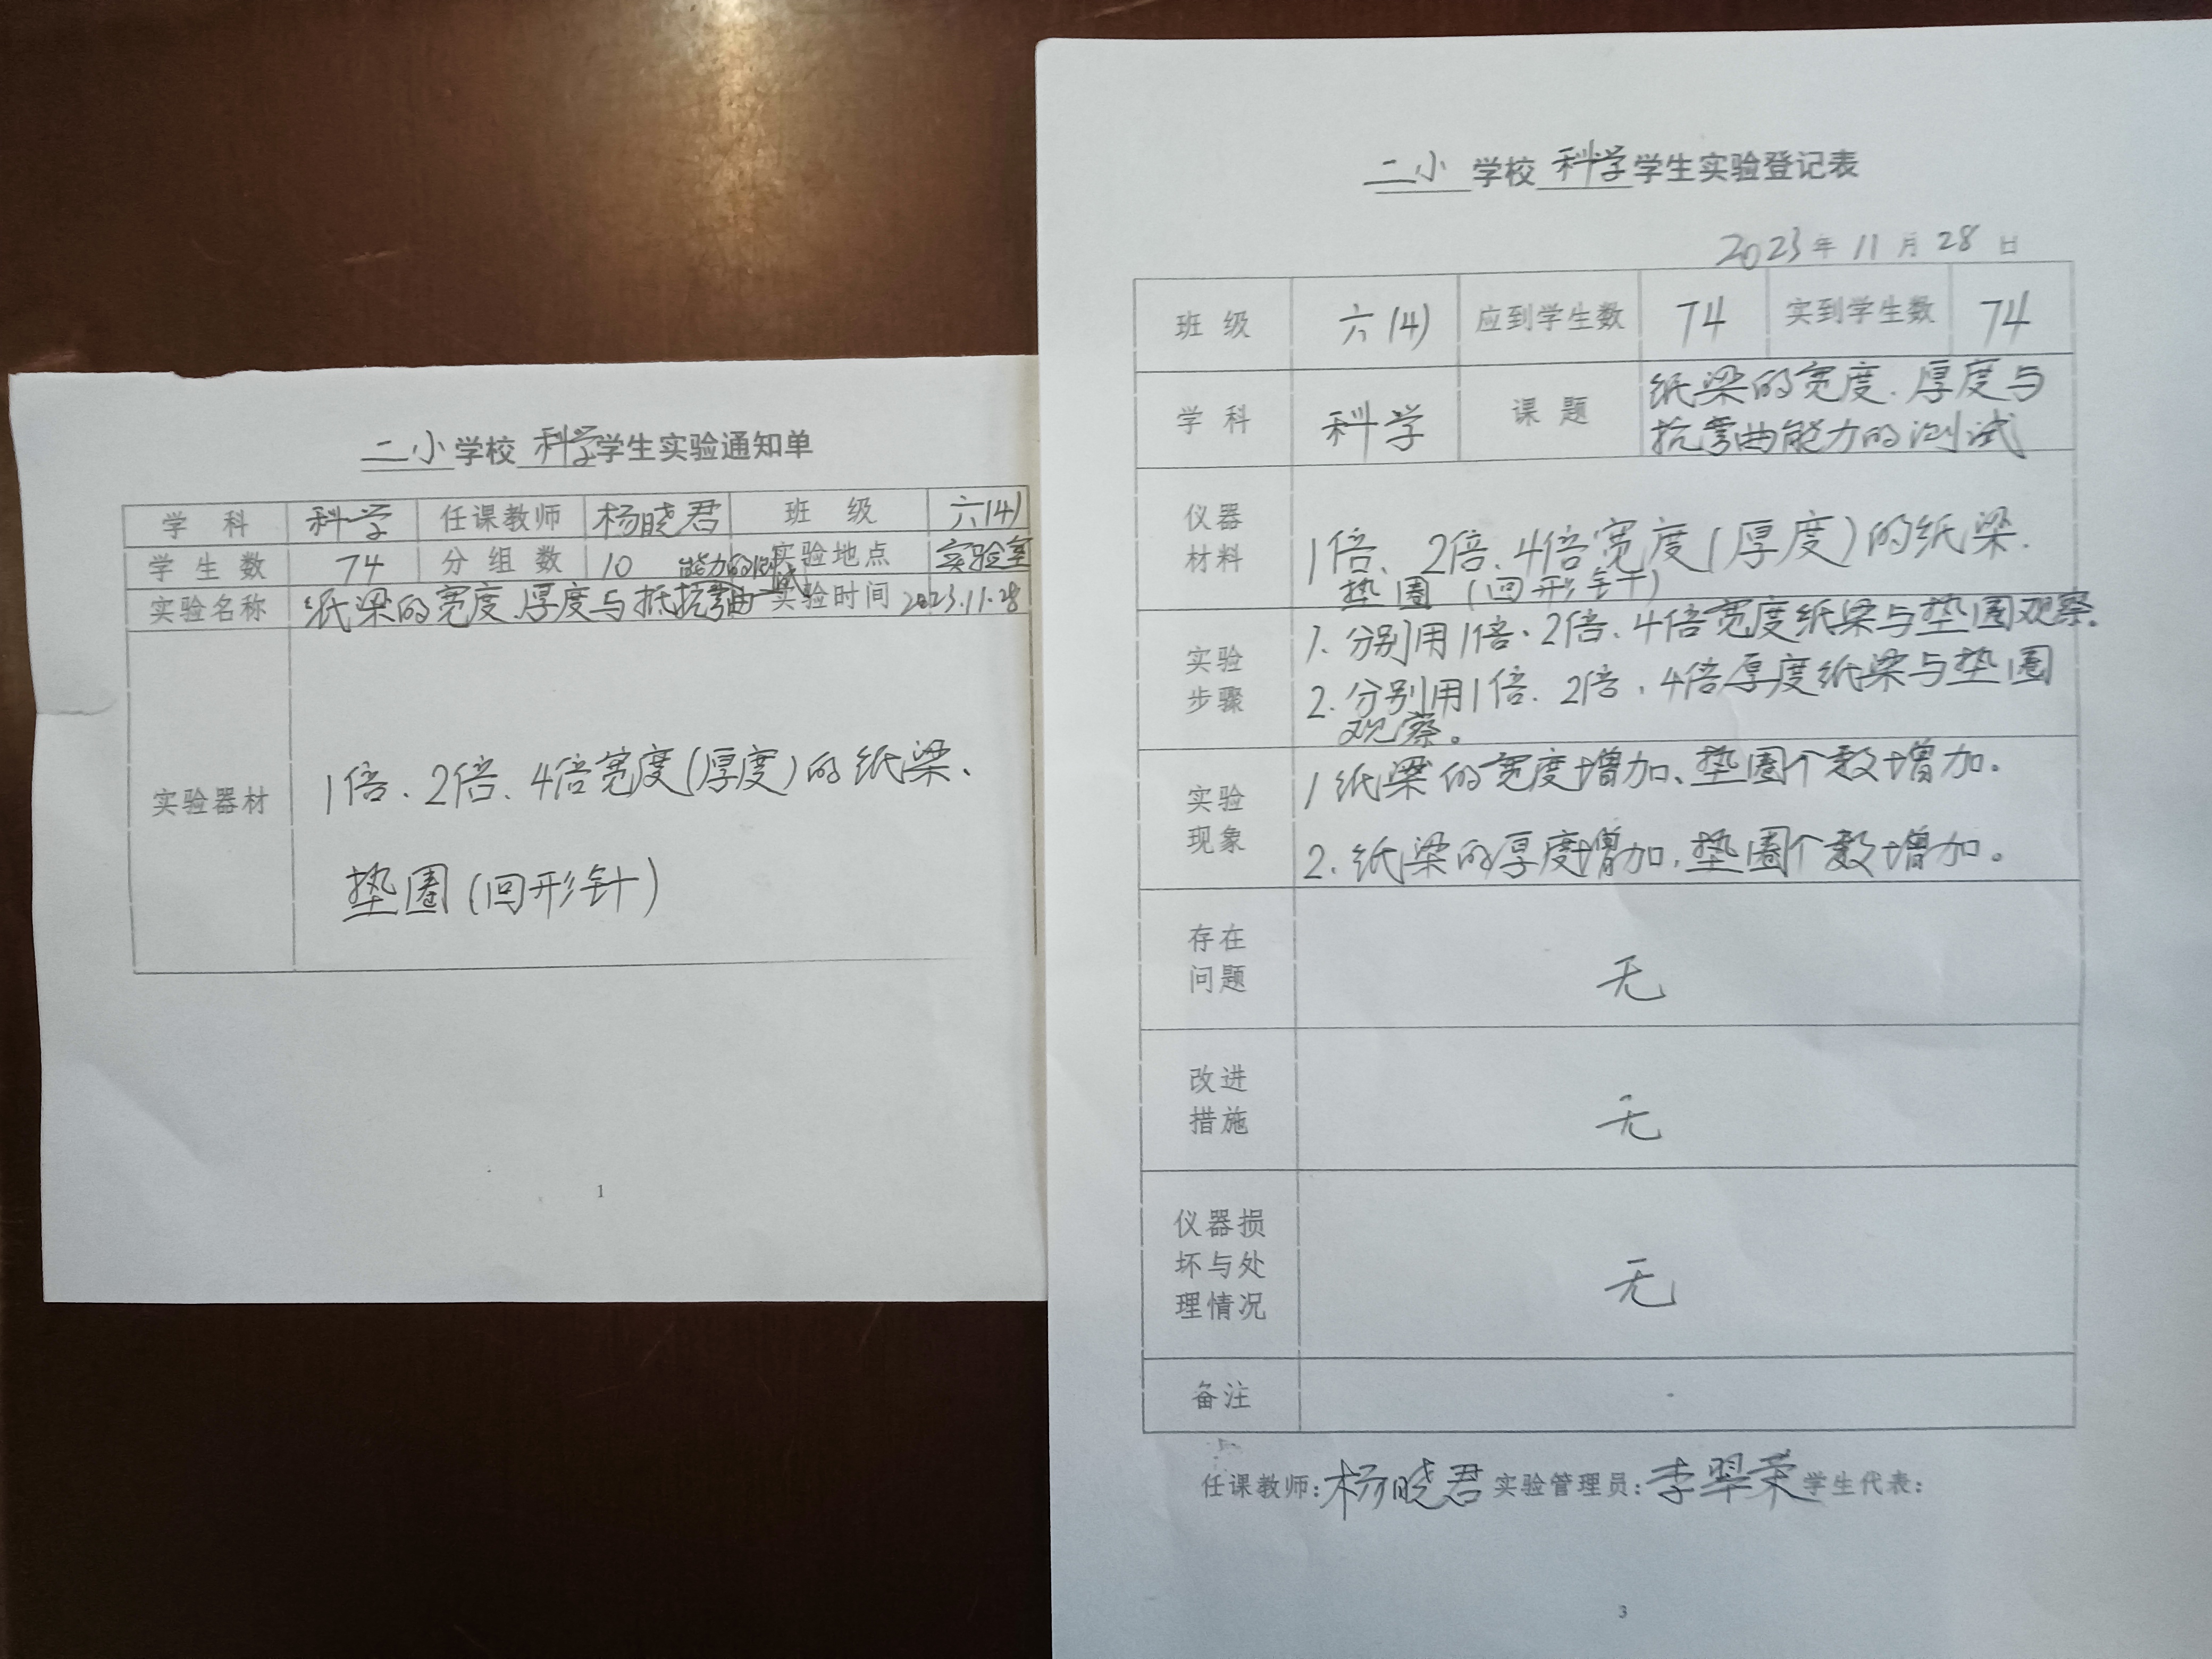 二小学校 科学学生实验通知单
学 科 科学 任课教师 杨晓君 班 级 六(4)
学 生 数 74 分 组 数 10 实验地点 实验室
实验名称 纸梁的宽度、厚度与抵抗弯曲能力的测试 实验时间 2023.11.28
实验器材
1倍、2倍、4倍宽度(厚度)的纸梁、
垫圈(回形针)
1
二小 学校 科学 学生实验登记表
2023年 11 月 28 日
班 级 六(4) 应到学生数 74 实到学生数 74
学 科 科学 课 题 纸梁的宽度、厚度与
抗弯曲能力的测试
仪器
材料
1倍、2倍、4倍宽度(厚度)的纸梁.
垫圈(回形针)
实验
步骤
1. 分别用1倍、2倍、4倍宽度纸梁与垫圈观察。
2. 分别用1倍、2倍、4倍厚度纸梁与垫圈
观察。
实验
现象
1 纸梁的宽度增加、垫圈个数增加。
2. 纸梁的厚度增加,垫圈个数增加。
存在
问题
无
改进
措施
无
仪器损
坏与处
理情况
无
备注
任课教师:杨晓君 实验管理员:李翠荣 学生代表:
3